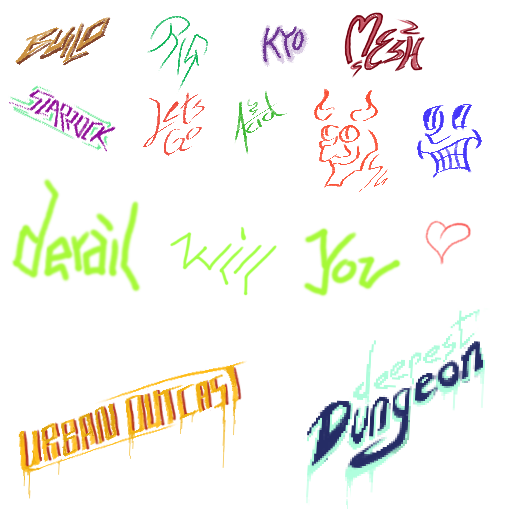 BUILD RIP KYO MESH
STARROCK Lets Go Acid
derail will you
URBAN OUTCAST
deepest
Dungeon